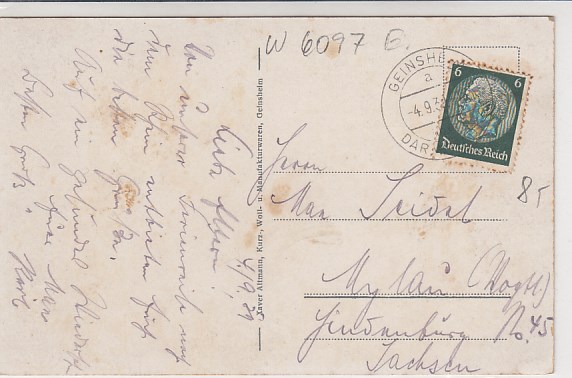 W 6097 E.
Liebe Eltern! 4/9. 39
Von unserer Ferienreise nach
dem Rhein entbieten Euch
die besten Grüße.
Auf ein gesundes Wiedersehen
Besten Gruß.
Eure Max
Xaver Altmann, Kurz-, Woll- u. Manufakturwaren, Geinsheim
GEINSHE
a
-4.9.3
DAR
6 6
Deutsches Reich
85
Herrn
Max Seidel
Mylau (Vogtl)
Hindenburg No. 45
Sachsen